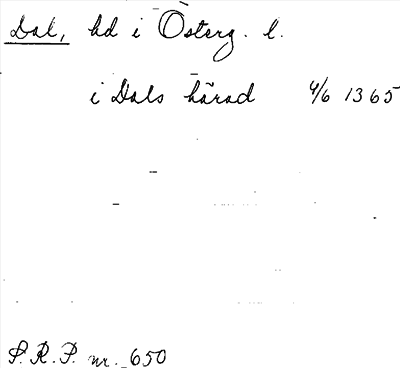 Dal, hd i Österg. l.
i Dals härad 4/6 1365
S.R.P. nr. 650